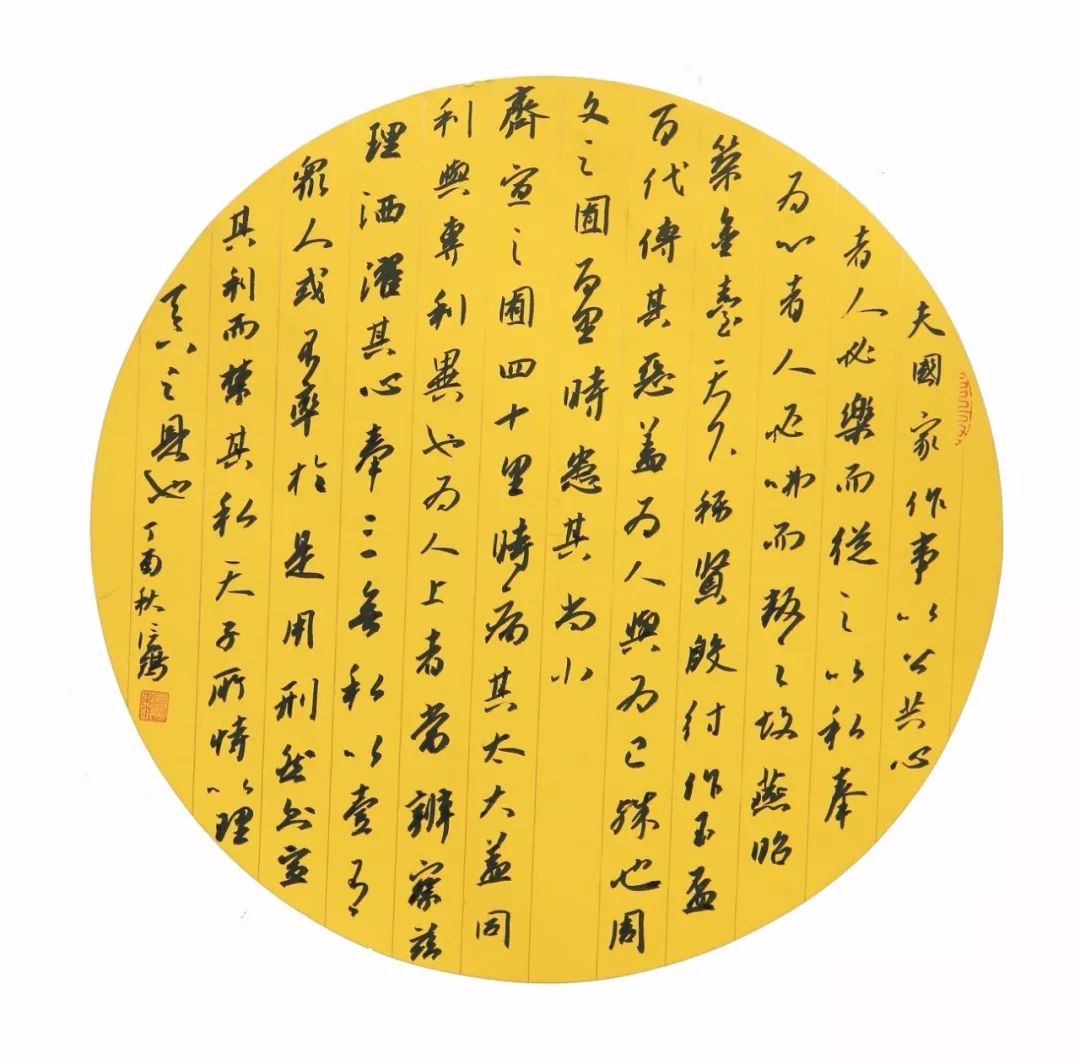 夫國家作事以公共心
者人必樂而從之以私奉
為心者人必咈而叛之故燕昭
築金臺天下稱賢殷紂作玉盃
百代傳其惡蓋為人與為己殊也周
文之囿百里時患其尚小
齊宣之囿四十里時病其太大蓋同
利與專利異也為人上者當辨察茲
理洒濯其心奉三無私以壹有
衆人或不率於是用刑然則宣
其利而禁其私天子所恃以理
天下之具也丁酉秋